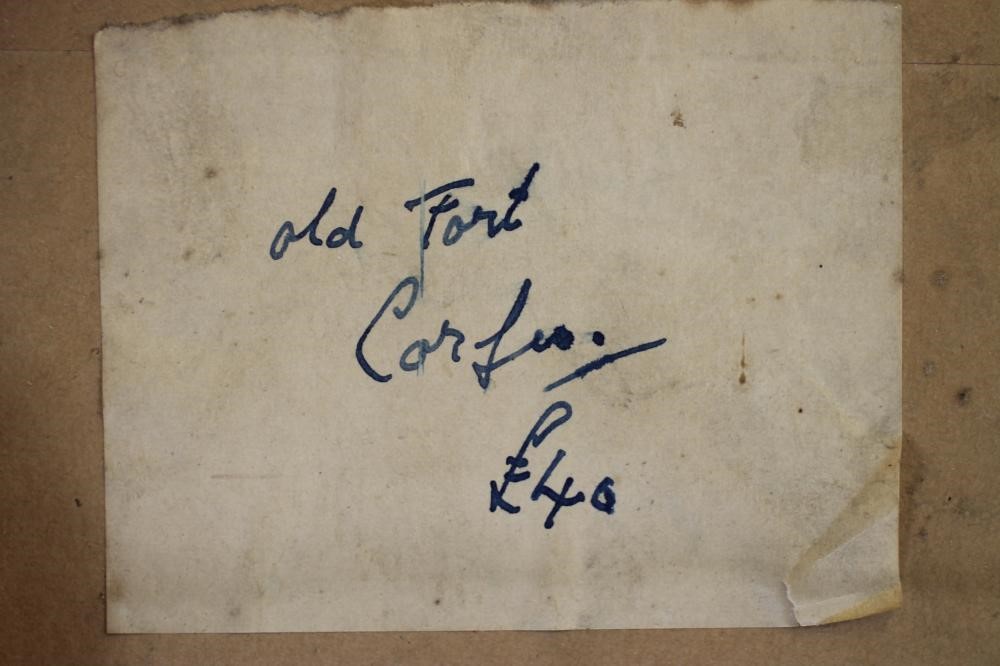 old Fort
Corfu.
£40